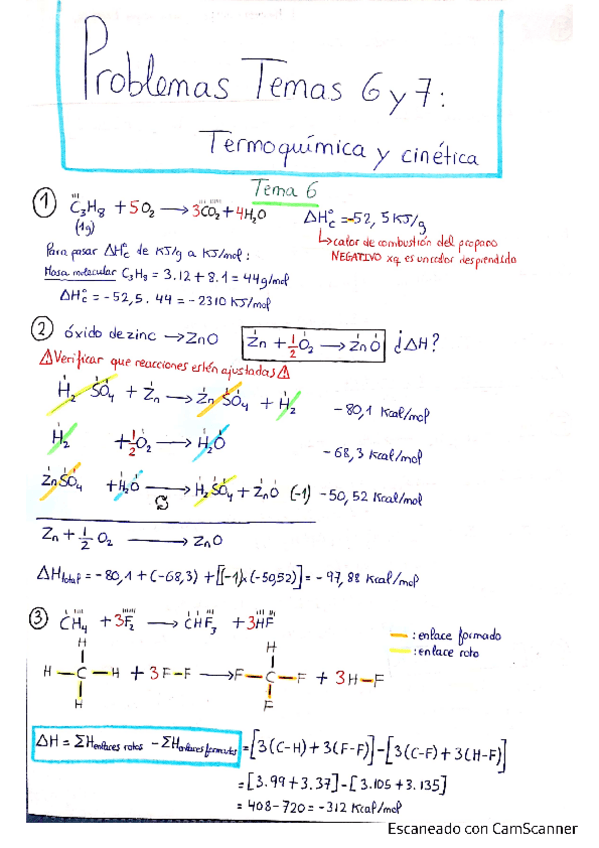 Problemas Temas 6 y 7:
Termoquímica y cinética
Tema 6
① C₃H₈ + 5O₂ → 3CO₂ + 4H₂O ΔH°c = -52,5 KJ/g
(1g) ↳ calor de combustión del propano
NEGATIVO xq es un calor desprendido
Para pasar ΔH°c de KJ/g a KJ/mol:
Masa molecular C₃H₈ = 3.12 + 8.1 = 44g/mol
ΔH°c = -52,5 . 44 = -2310 KJ/mol
② óxido de zinc → ZnO Zn + 1/2 O₂ → ZnO ¿ΔH?
⚠Verificar que reacciones estén ajustadas⚠
H₂SO₄ + Zn → ZnSO₄ + H₂ -80,1 Kcal/mol
H₂ + 1/2 O₂ → H₂O -68,3 Kcal/mol
ZnSO₄ + H₂O → H₂SO₄ + ZnO (-1) -50,52 Kcal/mol
Zn + 1/2 O₂ → ZnO
ΔHtotal = -80,1 + (-68,3) + [(-1)x(-50,52)] = -97,88 Kcal/mol
③ CH₄ + 3F₂ → CHF₃ + 3HF
: enlace formado
: enlace roto
H H
H - C - H + 3F - F → F - C - F + 3H - F
H F
ΔH = ΣHenlaces rotos - ΣHenlaces formados = [3(C-H) + 3(F-F)] - [3(C-F) + 3(H-F)]
= [3.99 + 3.37] - [3.105 + 3.135]
= 408 - 720 = -312 Kcal/mol
Escaneado con CamScanner